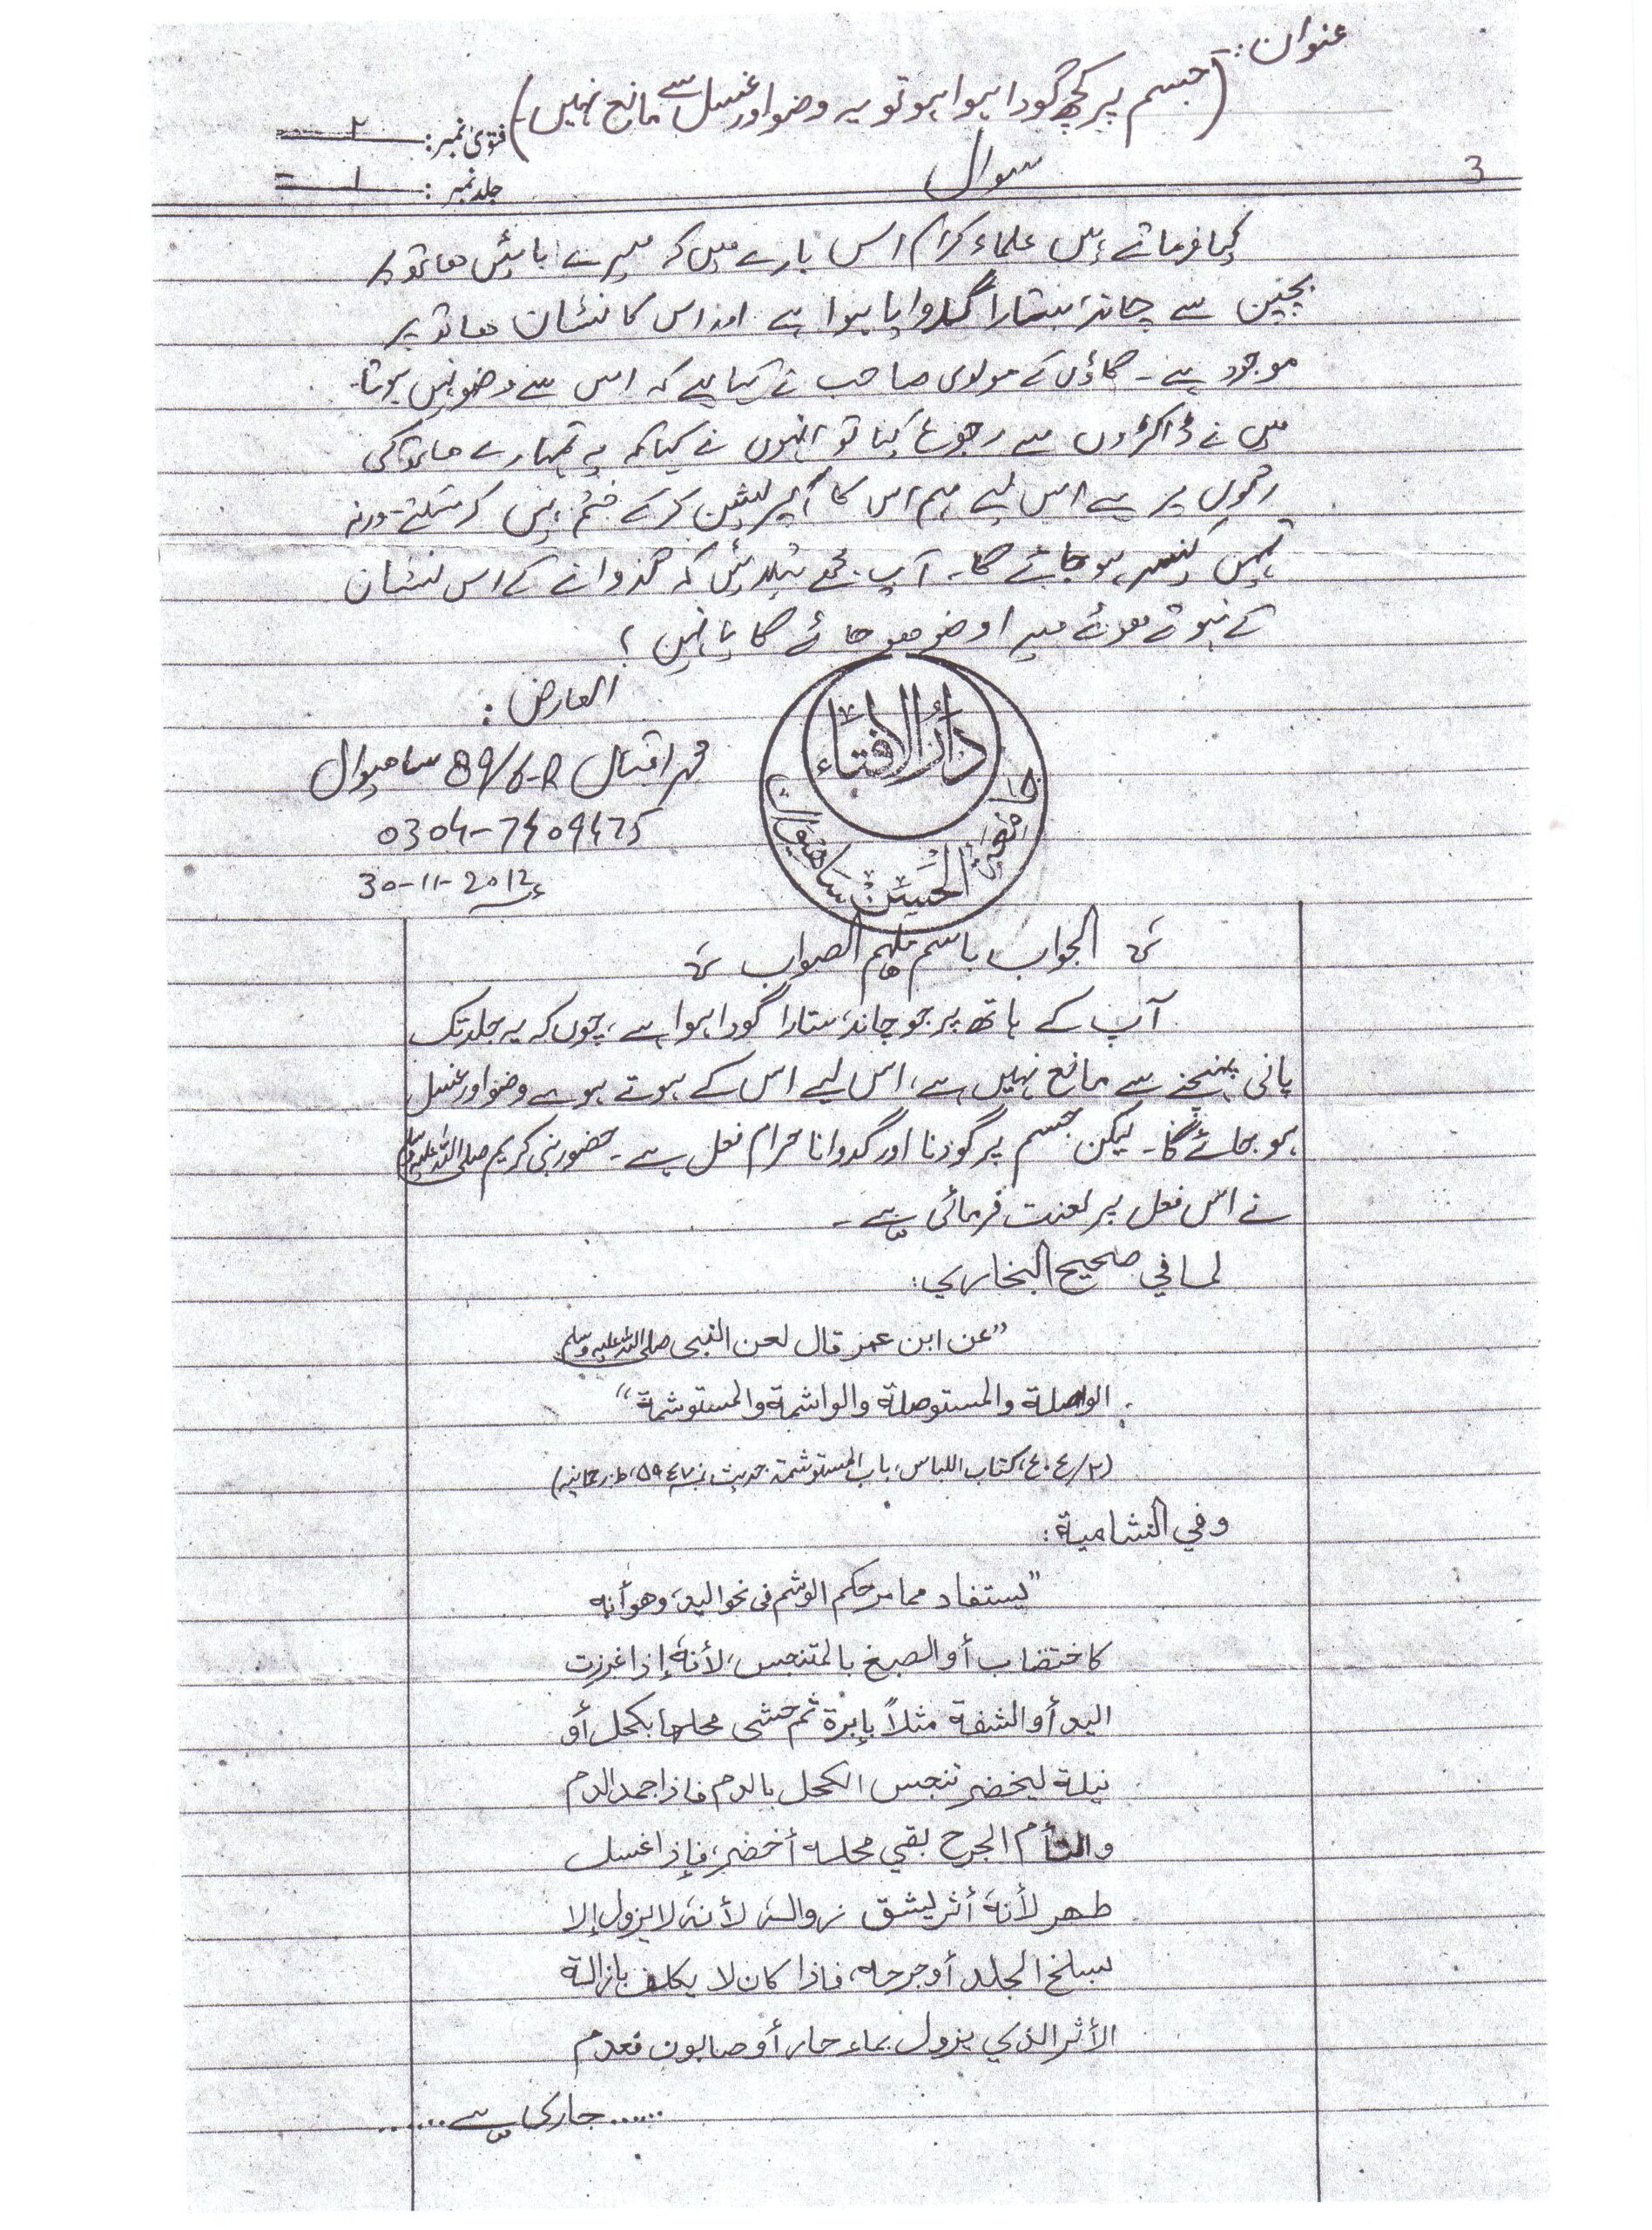 عنوان:
(جسم پر کچھ گودا ہوا ہو تو یہ وضو اور غسل سے مانع نہیں)
فتویٰ نمبر: ۲
سوال
3
جلد نمبر: ۱
کیا فرماتے ہیں علماء کرام اس بارے میں کہ میرے بائیں ہاتھ پر
بچپن سے چاند ستارا گدوایا ہوا ہے اور اس کا نشان ہاتھ پر
موجود ہے۔ گاؤں کے مولوی صاحب نے کہا ہے کہ اس سے وضو نہیں ہوتا۔
میں نے ڈاکٹروں سے رجوع کیا تو انہوں نے کہا کہ یہ تمہارے ہاتھ کی
رگوں پر ہے اس لیے ہم اس کا آپریشن کرکے ختم نہیں کر سکتے۔ ورنہ
تمہیں کینسر ہو جائے گا۔ آپ مجھے بتلائیں کہ گدوانے کے اس نشان
کے ہوتے ہوئے میرا وضو ہو جائے گا یا نہیں؟
العارض:
محمد اقبال 89/6-R ساہیوال
0304-7409475
30-11-2012ء
دارالافتاء
جامعہ الحسین ساہیوال
الجواب باسم ملہم الصواب
آپ کے ہاتھ پر جو چاند، ستارا گودا ہوا ہے، چوں کہ یہ جلد تک
پانی پہنچنے سے مانع نہیں ہے، اس لیے اس کے ہوتے ہوے وضو اور غسل
ہو جائے گا۔ لیکن جسم پر گودنا اور گدوانا حرام فعل ہے۔ حضور نبی کریم صلی اللہ علیہ وسلم
نے اس فعل پر لعنت فرمائی ہے۔
لما في صحيح البخاري:
”عن ابن عمر قال لعن النبى صلی اللہ علیہ وسلم
الواصلة والمستوصلة والواشمة والمستوشمة“
(۲/٤٠٤، كتاب اللباس، باب المستوشمة، حديث نمبر ۵۹٤۷، ط: رحمانيہ)
وفي الشامية:
”يستفاد مما مر حكم الوشم فى نحو اليد، وهو أنه
كاختضاب أو الصبغ بالمتنجس، لأنه إذا غرزت
اليد أو الشفة مثلاً بإبرة ثم حشى محلها بكحل أو
نيلة ليخضر تنجس الكحل بالدم فاذا جمد الدم
والتأم الجرح بقي محله أخضر، فإذا غسل
طهر لأنه أثر يشق زواله، لأنه لا يزول إلا
بسلخ الجلد أو جرحه، فاذا كان لا يكلف بازالة
الأثر الذي يزول بماء حار أو صابون فعدم
......جاری ہے......